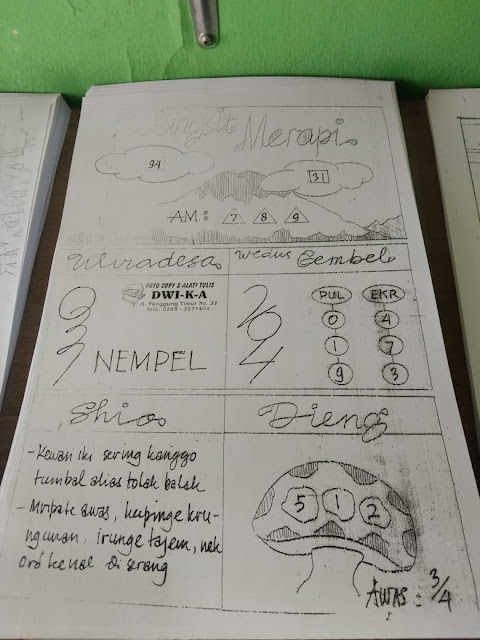 Wangsit Merapi
94
31
AM.: 7 8 9
Wiradesa
FOTO COPY & ALAT² TULIS
DWI-K-A
Jl. Panggung Timur No. 37
Telp. 0285 - 3277404
NEMPEL
Wedus Gembel
PUL EKR
0 4
1 7
9 3
Shio
- Kewan iki sering kanggo
tumbal alias tolak balak
- Mripate awas, kupinge kru-
ngunan, irunge tajem, nek
ora kenal diserang
Dieng
5 1 2
AWAS = 3/4